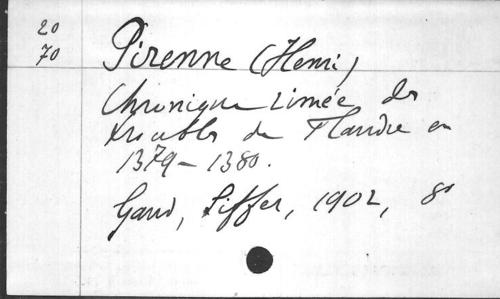 20
70
Pirenne (Henri)
Chronique rimée des
troubles de Flandre en
1379-1380.
Gand, Siffer, 1902, 8°